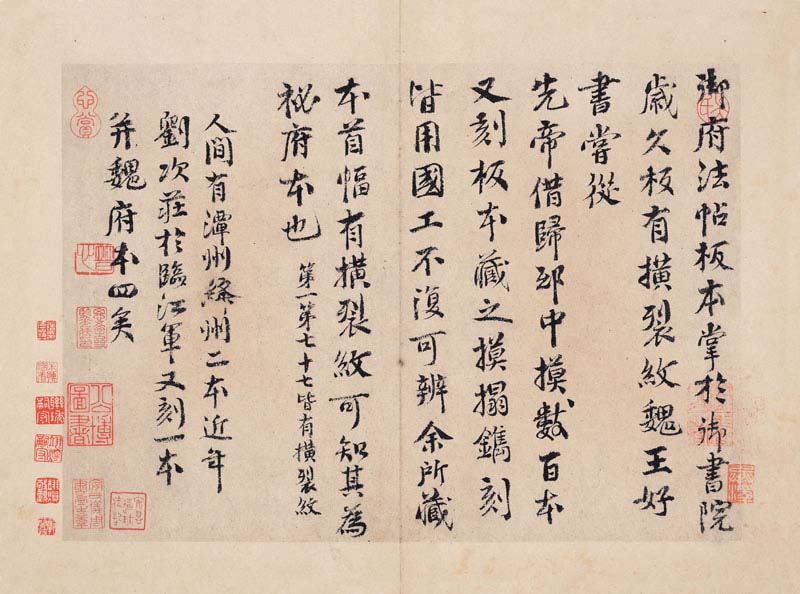 御府法帖板本掌於御書院
歲久板有橫裂紋魏王好
書嘗從
先帝借歸邸中摸數百本
又刻板本藏之摸搨鐫刻
皆用國工不復可辨余所藏
本首幅有橫裂紋可知其為
祕府本也 第一第七十七皆有橫裂紋
人間有潭州絳州二本近年
劉次莊於臨江軍又刻一本
并魏府本四矣